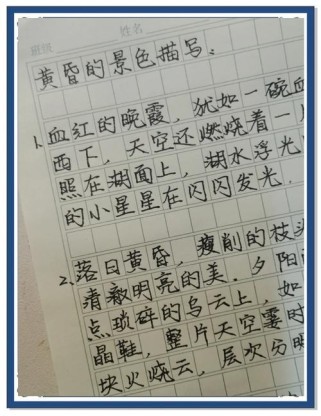 班级 姓名
黄昏的景色描写:
1.血红的晚霞,犹如一碗血
西下,天空还燃烧着一
照在湖面上,湖水浮光
的小星星在闪闪发光.
2.落日黄昏,瘦削的枝头
清澈明亮的美.夕阳
点琐碎的乌云上,如
晶鞋,整片天空霎时
块火烧云,层次分明